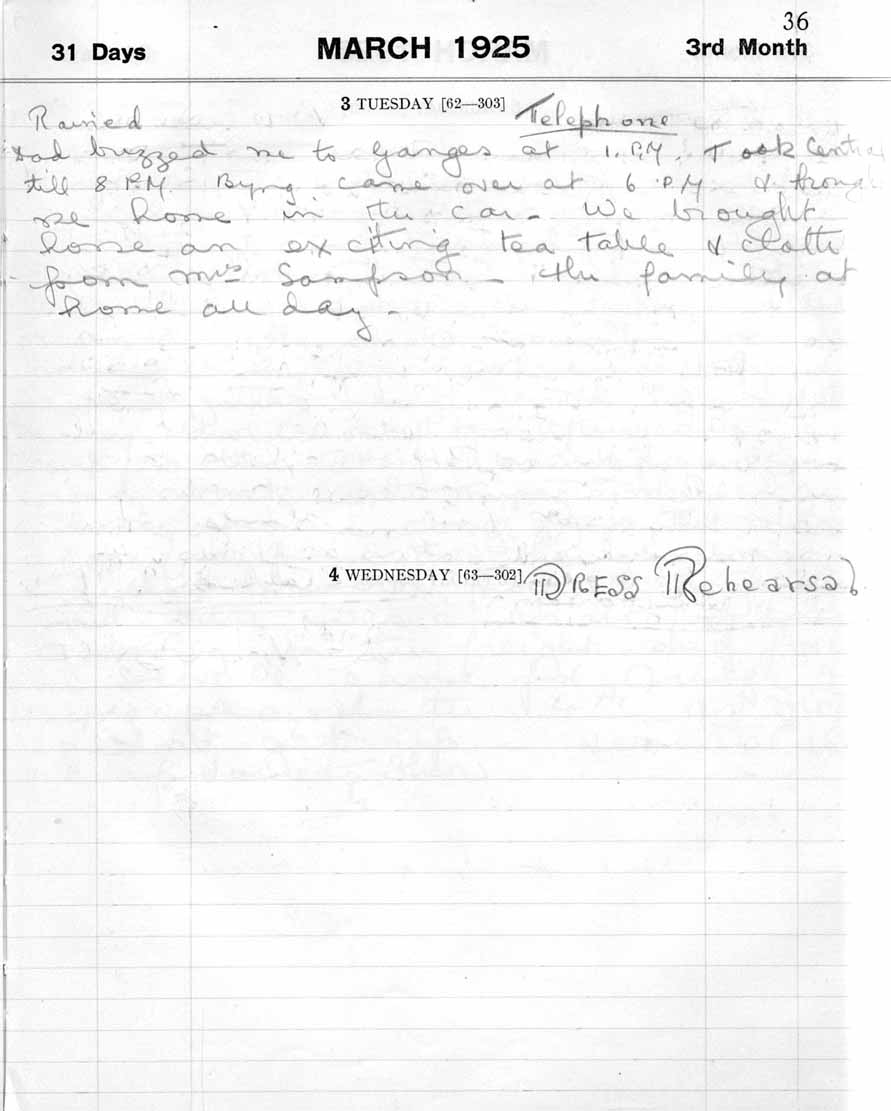 36
31 Days MARCH 1925 3rd Month
3 TUESDAY [62—303] Telephone
Rained
Dad buzzed me to Ganges at 1. P.M. Took Central
till 8 P.M. Byng came over at 6 P.M &
me home in the car - We brought
home an exciting tea table & cloth
from Mrs Sampson - the family at
home all day -
4 WEDNESDAY [63—302] DRESS Rehearsal